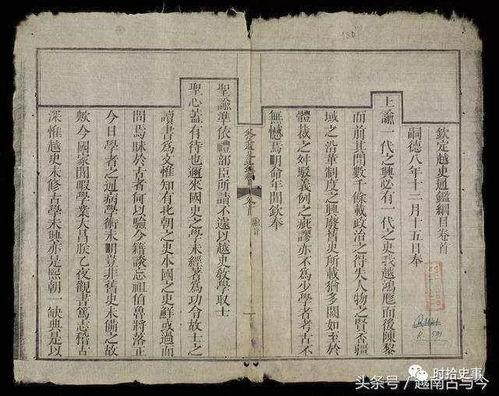 欽定越史通鑑綱目卷首
嗣德八年十二月十五日奉
上諭一代之興必有一代之史我越鴻厖而後陳黎
而前其間數千餘載政治之得失人物之賢否疆
域之沿革制度之興廢舊史所載猶多闕如至於
體裁之舛駁義例之疵謬亦不爲少學者考古不
無憾焉明命年間欽奉
聖諭準依禮部臣所請不遽以越史敎學取士
聖心蓋有待也邇來國史之學未經著爲功令故士之
讀書爲文惟知有北朝之史本國之史鮮或過而
問焉昧於古者何以驗今籍談忘祖伯魯將落正
今日學者之通病學術未明豈非舊史未備之故
歟今國家閒暇學業大昌朕乙夜觀書篤志稽古
深惟越史未修古學未興亦是熙朝一缺典是以
时拾史事
头条号 / 越南古与今